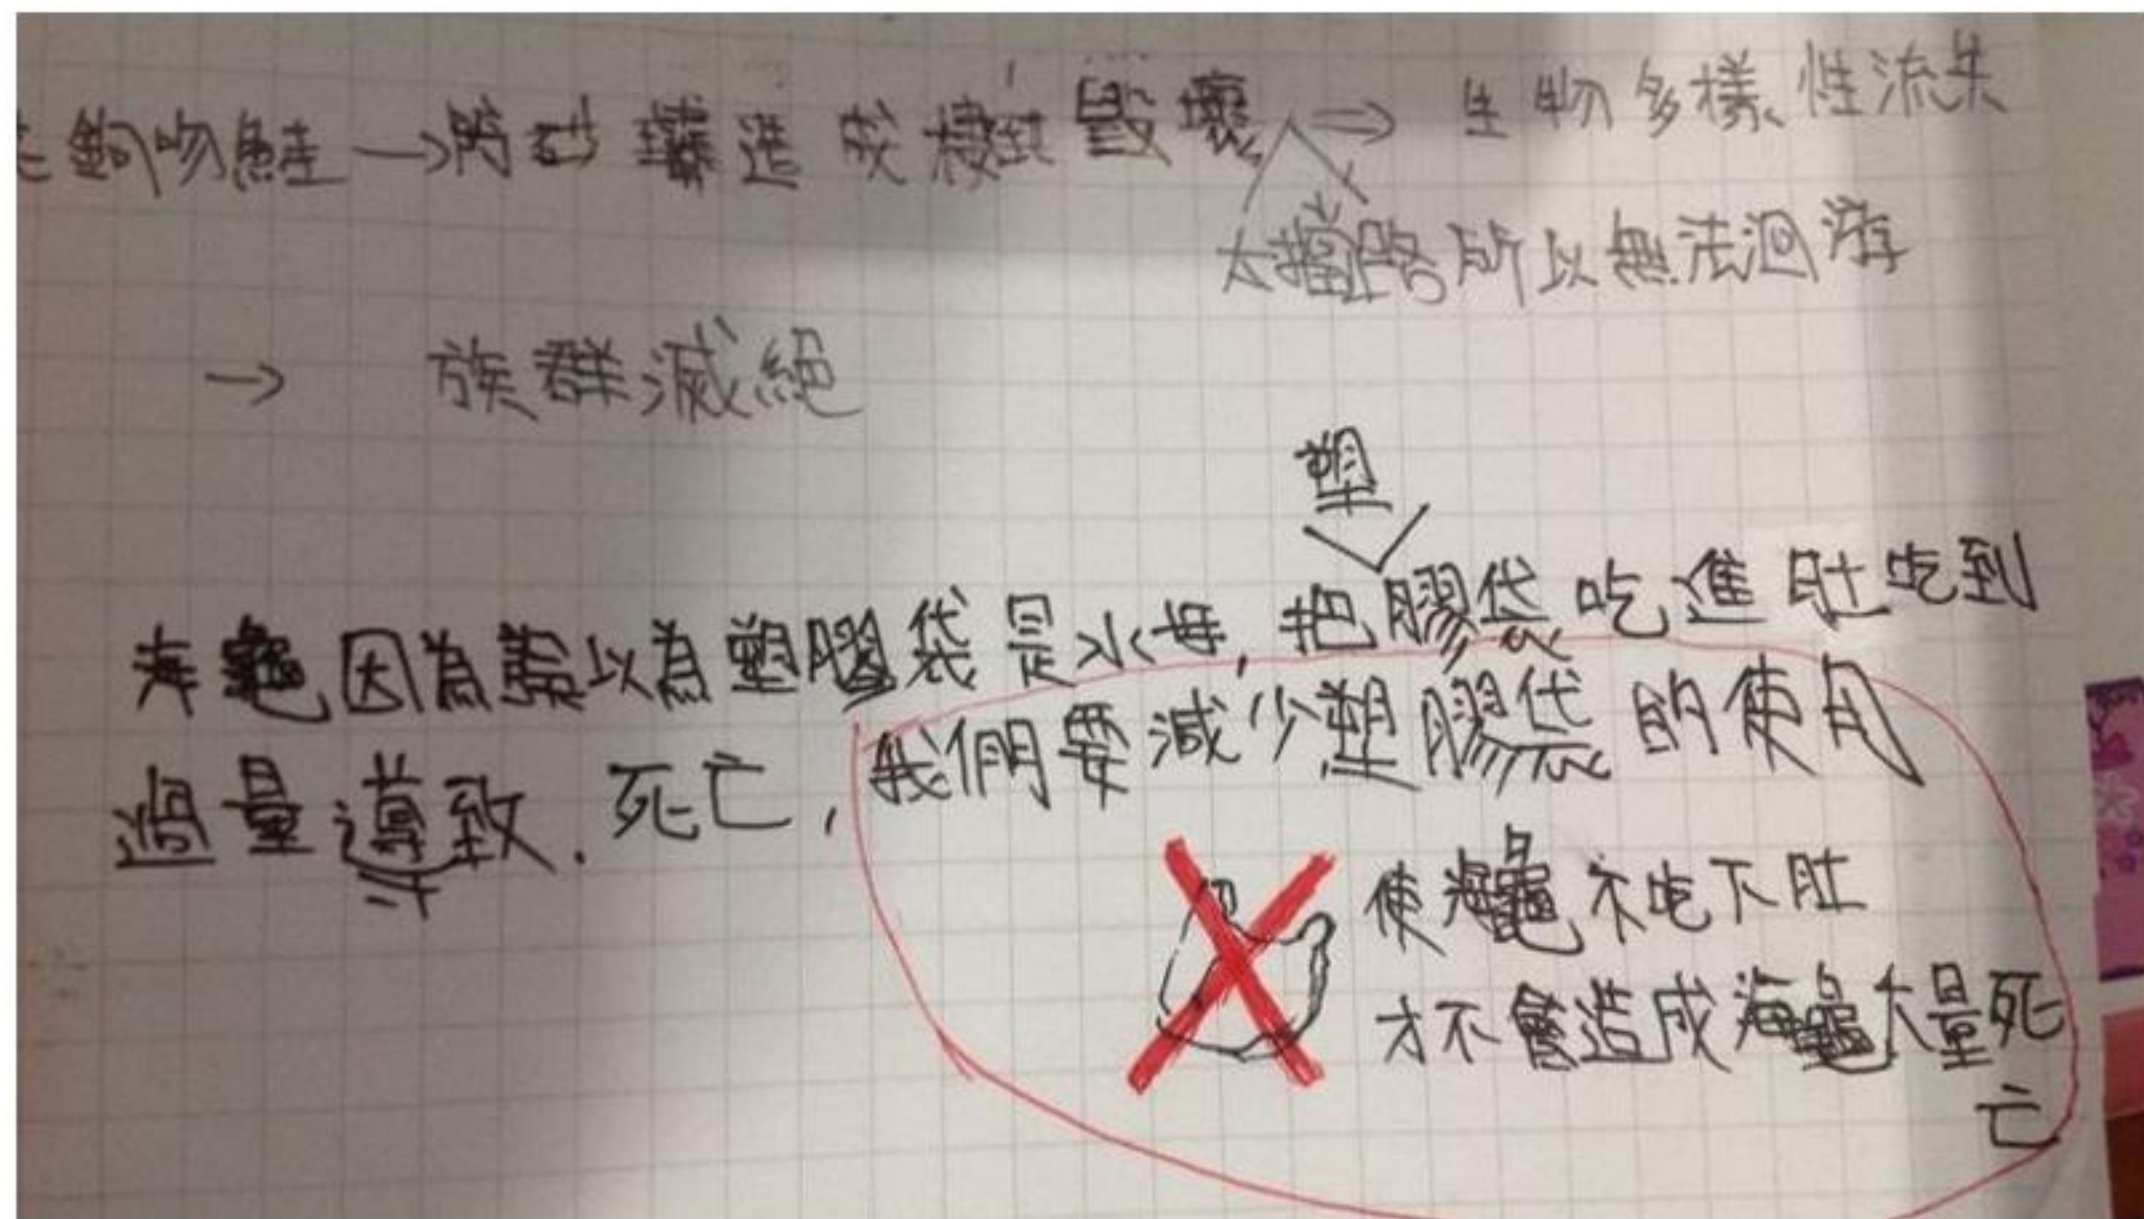 鉤吻鮭→防砂壩造成棲地毀壞⇒生物多樣性流失
擋路所以無法迴游
→ 族群滅絕
塑
海龜因為誤以為塑膠袋是水母,把膠袋吃進肚吃到
過量導致.死亡,我們要減少塑膠袋的使用
使海龜不吃下肚
才不會造成海龜大量死
亡